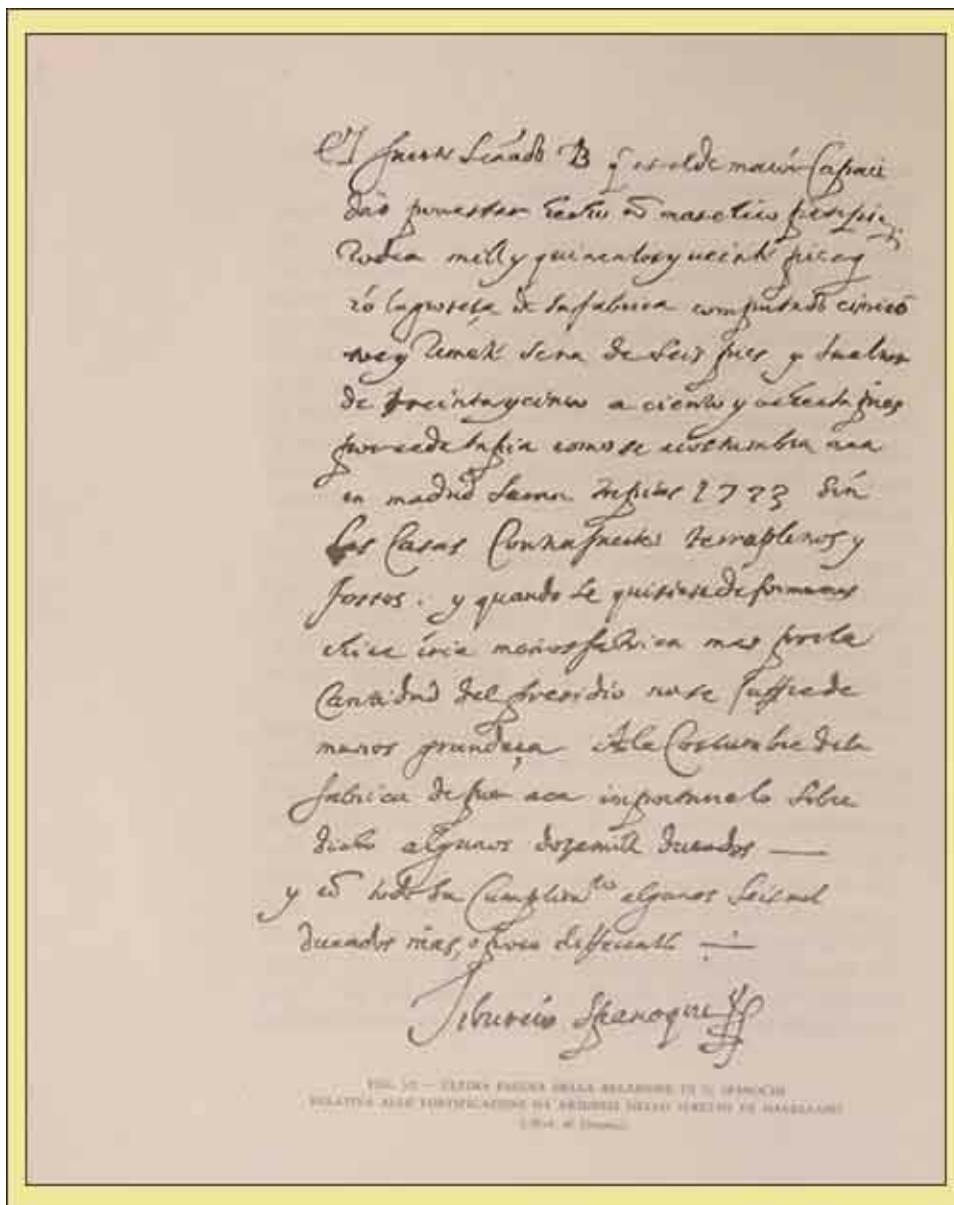 El fuerte señado B q es el de maior Capaci
dad por estar
Rodea mill y quinientos y ueinte pies y
la de su fabrica computado
sera de seis pies y su altura
de treinta y cinco a ciento y pies
de tapia como se acostumbra aca
en madrid suma 1773 sin
las Casas terraplenos y
fossos. y quando se quisiese de forma mas
chica iria menos fabrica mas por la
Cantidad del presidio no se suffre de
menos grandeça A la Costumbre de la
fabrica de por aca importaria lo sobre
dicho algunos doze mill ducados —
y en todo su Cumplimto algunos seis mil
ducados mas, o poco differente
Tiburcio Spanoqui
FIG. — ULTIMA PAGINA DELLA RELAZIONE DI T. SPANOCHI
RELATIVA ALLE FORTIFICAZIONI DA ERIGERSI NELLO STRETTO DI MAGELLANO